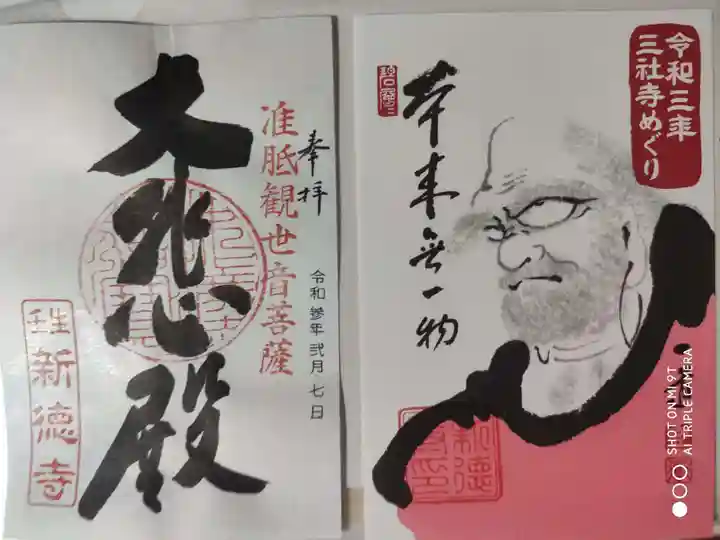 奉拝
准胝観世音菩薩
大悲心殿
令和参年弐月七日
新徳寺
令和三年
三社寺めぐり
本来無一物
新徳
SHOT ON MI 9T
AI TRIPLE CAMERA